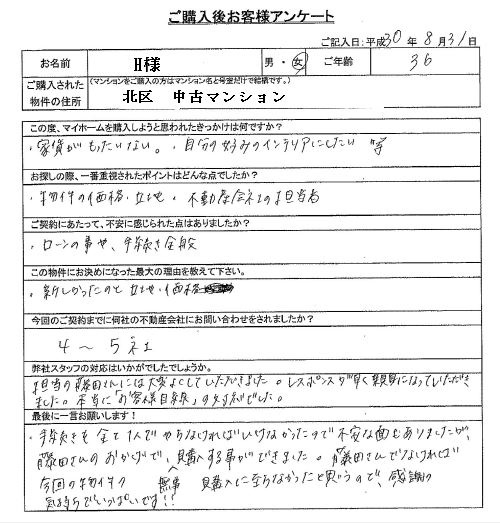 ご購入後お客様アンケート
ご記入日:平成30年8月31日
お名前 H様 男・女 ご年齢 36
ご購入された物件の住所 (マンションをご購入の方はマンション名と号室だけで結構です。)
北区 中古マンション
この度、マイホームを購入しようと思われたきっかけは何ですか?
・家賃がもったいない。・自分の好みのインテリアにしたい 等
お探しの際、一番重視されたポイントはどんな点でしたか?
・物件の価格・立地・不動産会社の担当者
ご契約にあたって、不安に感じられた点はありましたか?
・ローンの事や、手続き全般
この物件にお決めになった最大の理由を教えて下さい。
・新しかったのと立地・価格
今回のご契約までに何社の不動産会社にお問い合わせをされましたか?
4〜5社
弊社スタッフの対応はいかがでしたでしょうか。
担当の藤田さんには大変よくしていただきました。レスポンスが早く親身になっていただき
ました。本当に「お客様目線」の対応でした。
最後に一言お願いします!
・手続きも全て1人でやらなければいけなかったので不安な面もありましたが、
藤田さんのおかげで、購入する事ができました。藤田さんでなければ
今回の物件の 無事 購入に至らなかったと思うので、感謝の
気持ちでいっぱいです!!